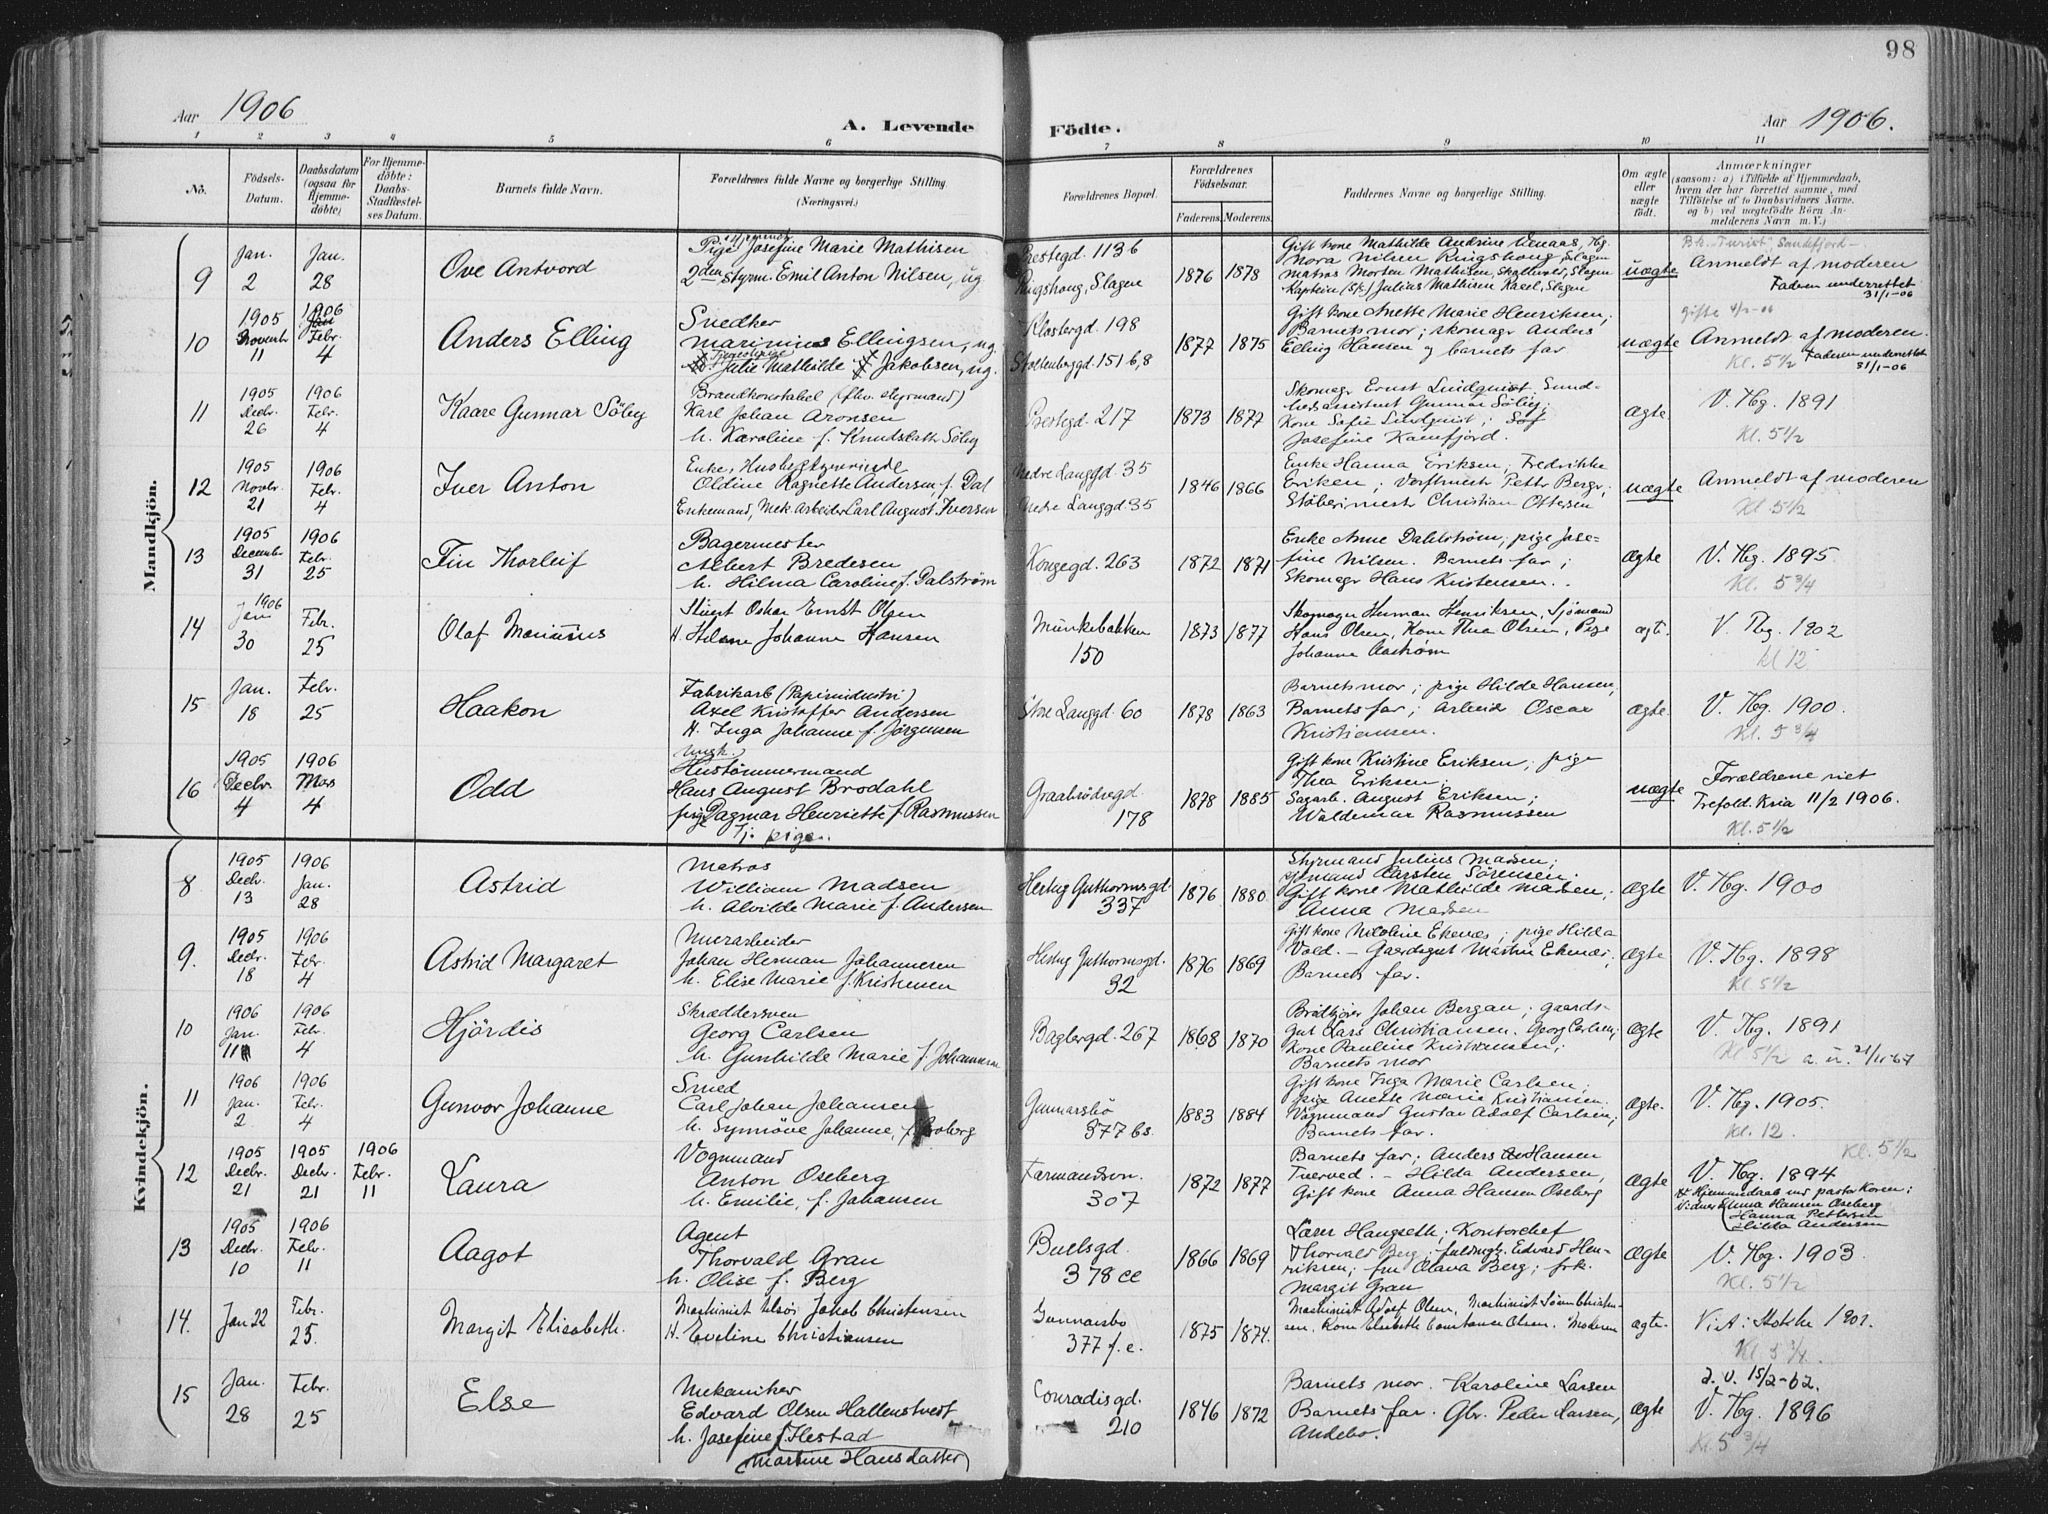 98
Aar 1906
A. Levende Födte.
Aar 1906.
1 2 3 4 5 6 7 8 9 10 11
No.
Födsels-Datum.
Daabsdatum (ogsaa for Hjemme-döbte)
For Hjemme-döbte: Daabs-Stadfæstel-ses Datum.
Barnets fulde Navn.
Forældrenes fulde Navne og borgerlige Stilling.
(Næringsvei.)
Forældrenes Bopæl.
Forældrenes Födselsaar.
Faderens. Moderens.
Faddernes Navne og borgerlige Stilling.
Om ægte eller uægte födt.
Anmærkninger
(saasom: a) i Tilfælde af Hjemmedaab,
hvem der har forrettet samme, med
Tilföielse af to Daabsvidners Navne.
og b) ved uægtefödte Börn An-
melderens Navn m. V.)
Mandkjön.
9 Jan. 2 Jan. 28 Ove Antvord
Pige Josefine Marie Mathisen
2den styrm. Emil Anton Nilsen, ug.
Prestegd. 1136
Ringshoug, Slagen
1876 1878
Gift kone Mathilde Andrine Venaas, Tbg.
Nora Nilsen Ringshoug, Slagen
Matros Morten Mathisen, Slagen
Kaptein Julius Mathisen Kasel, Slagen
uægte
Sandefjord
Anmeldt af moderen
Faderen underrettet
31/1-06
10 1905 Novembr 11 1906 Febr. 4 Anders Elling
Snedker
Marinius Ellingsen, ug.
Tjenestepige
Julie Mathilde Jakobsen, ug.
Klostergd. 198
Stoltenberggd. 151 b,8
1877 1875
Gift kone Anette Marie Henriksen;
Barnets mor; skomagr Anders
Elling Hansen og barnets far
uægte
gifte 4/2-06
Anmeldt af moderen.
Kl. 5 1/2 Faderen underrettet
31/1-06
11 1905 Decbr. 26 1906 Febr. 4 Kaare Gunnar Söby
Brandkonstabel (fhv. styrmand)
Karl Johan Aronsen
h. Karoline f. Knudsdatt. Söby
Prestegd. 217
1873 1877
Skomagr Ernst Lindquist, Sund-
hedsassistent Gunnar Söby;
Kone Sofie Lindquist;
Josefine Kamfjord.
Ægte
V. Tbg. 1891
Kl. 5 1/2
12 1905 Novbr. 21 1906 Febr. 4 Iver Anton
Enke, Husbestyrerinde
Oldine Ragnette Andersen, f. Dal
Enkemand, Mek. Arbeider Carl August Iversen
Nedre Langgd. 35
Nedre Langgd. 35
1846 1866
Enke Hanna Eriksen, Fredrikke
Eriksen; Værftmest. Petter Bergr;
Støberimester Christian Ottersen
uægte
Anmeldt af moderen
Kl. 5 1/2
13 1905 Decembr 31 1906 Febr. 25 Fin Thorleif
Bagermester
Albert Bredesen
h. Hilma Caroline f. Dalström
Kongegd. 263
1872 1871
Enke Anne Dahlstrøm, pige Jose-
fine Nilsen. Barnets far;
Skomagr Hans Kristensen.
Ægte
V. Tbg. 1895
Kl. 5 3/4
14 1906 Jan 30 Febr. 25 Olaf Marinius
Stuert Oskar Ernst Olsen
H. Helene Johanne Hansen
Munkebakken
150
1873 1877
Skomager Herman Henriksen, Sjømand
Hans Olsen, Kone Thea Olsen, Pige
Johanne Aastrøm
ægte.
V. Tbg. 1902
Kl 12
15 Jan. 18 Febr. 25 Haakon
Fabrikarb (Papirindustri)
Axel Kristoffer Andersen
H. Inga Johanne f. Jörgensen
Store Langgd. 60
1878 1863
Barnets mor; pige Hilde Hansen,
Barnets far; Arbeid Oscar
Kristiansen.
Ægte.
V. Tbg. 1900.
Kl. 5 3/4
16 1905 Decbr. 4 1906 Mars 4 Odd
Ungk.
Hustömmermand
Hans August Brodahl
pige Dagmar Henriette f. Rasmussen
Tj. pige.
Graabrödregd
178
1878 1885
Gift kone Kristine Eriksen; pige
Thea Eriksen;
Sagarb. August Eriksen;
Waldemar Rasmussen
uægte
Forældrene viet
Trefold. Kria 11/2 1906.
Kl. 5 1/2
Kvindekjön.
8 1905 Decbr. 13 1906 Jan. 28 Astrid
Matros
William Madsen
h. Alvilde Marie f. Andersen
Hertug Guthormsgd.
337
1876 1880
Styrmand Julius Madsen;
Sjömand Karsten Sörensen;
Gift kone Mathilde Madsen,
Anna Madsen
Ægte
V. Tbg. 1900
9. 1905 Decbr. 18 1906 Febr. 4 Astrid Margaret
Murarbeider
Johan Herman Johannesen
h. Elise Marie f. Kristensen
Hertug Guthormsgd.
32
1876 1869
Gift kone Nicoline Ekenæs; pige Hilda
Vold. – Gaardsgut Martin Ekenæs,
Barnets far.
Ægte
V. Tbg. 1898
Kl 5 1/2
10 1906 Jan. 11 1906 Febr. 4 Hjördis
Skræddersven
Georg Carlsen
h. Gunhilde Marie f. Johannesen
Baglergd. 267
1868 1870
Johan Bergan; gaards-
gut Lars Christiansen. Georg Carlsen;
Kone Pauline Kristiansen;
Barnets mor
Ægte
V. Tbg. 1891
Kl 5 1/2 a. u. 21/11-67
11 1906 Jan. 2 1906 Febr. 4 Gunvor Johanne
Smed
Carl Johan Johansen
h. Synnöve Johanne, f. Broberg
Gunnarsbö
377 bs.
1883 1884
Gift kone Inga Marie Carlsen;
pige Anette Marie Kristiansen.
Vognmand Gustav Adolf Carlsen;
Barnets far.
Ægte.
V. Tbg. 1905.
Kl. 12.
12 1905 Decbr. 21 1905 Decbr. 21 1906 Febr. 11 Laura
Vognmand
Anton Oseberg
h. Emilie, f. Johansen
Farmandsvn.
307
1872 1877
Barnets far; Anders Hansen
Tverved. – Hilda Andersen,
Gift kone Anna Hansen Oseberg
Ægte
Kl. 5 1/2
V. Tbg. 1894
Hjemmedaab ved pastor Koren;
Vidner Anna Hansen Oseberg
Hanna Pettersen
Hilda Andersen
13 1905 Decbr. 10 1906 Febr. 11 Aagot
Agent
Thorvald Gran
h. Olise f. Berg
Buelsgd.
378 cc
1866 1869
Lærer Haugseth; Kontorchef
Thorvald Berg; fuldmgt. Edvard Hen-
riksen; fru Olava Berg; frk.
Margit Gran
Ægte
V. Tbg. 1903.
Kl. 5 1/2
14. Jan 22 Febr. 25. Margit Elisabeth.
Maskinist Jakob Christensen
H. Eveline Christiansen
Gunnarsbö
377 f. e.
1875 1874.
Maskinist Adolf Olsen, Maskinist Sønn Christen-
sen. Kone Elisabeth Constance Olsen. Moderen
ægte.
Viet i Hokke 1901.
Kl. 5 3/4.
15 Jan. 28 Febr. 25 Else
Mekaniker
Edvard Olsen Hallenstvest
h. Josefine f. Hestad
(Martine Hansdatter)
Conradisgd.
210
1846 1872
Barnets mor. Karoline Larsen
Barnets far. Gbr. Peder Larsen,
Andebo.
Ægte
a. u. 15/2-62.
V. Tbg. 1896
Kl. 5 3/4